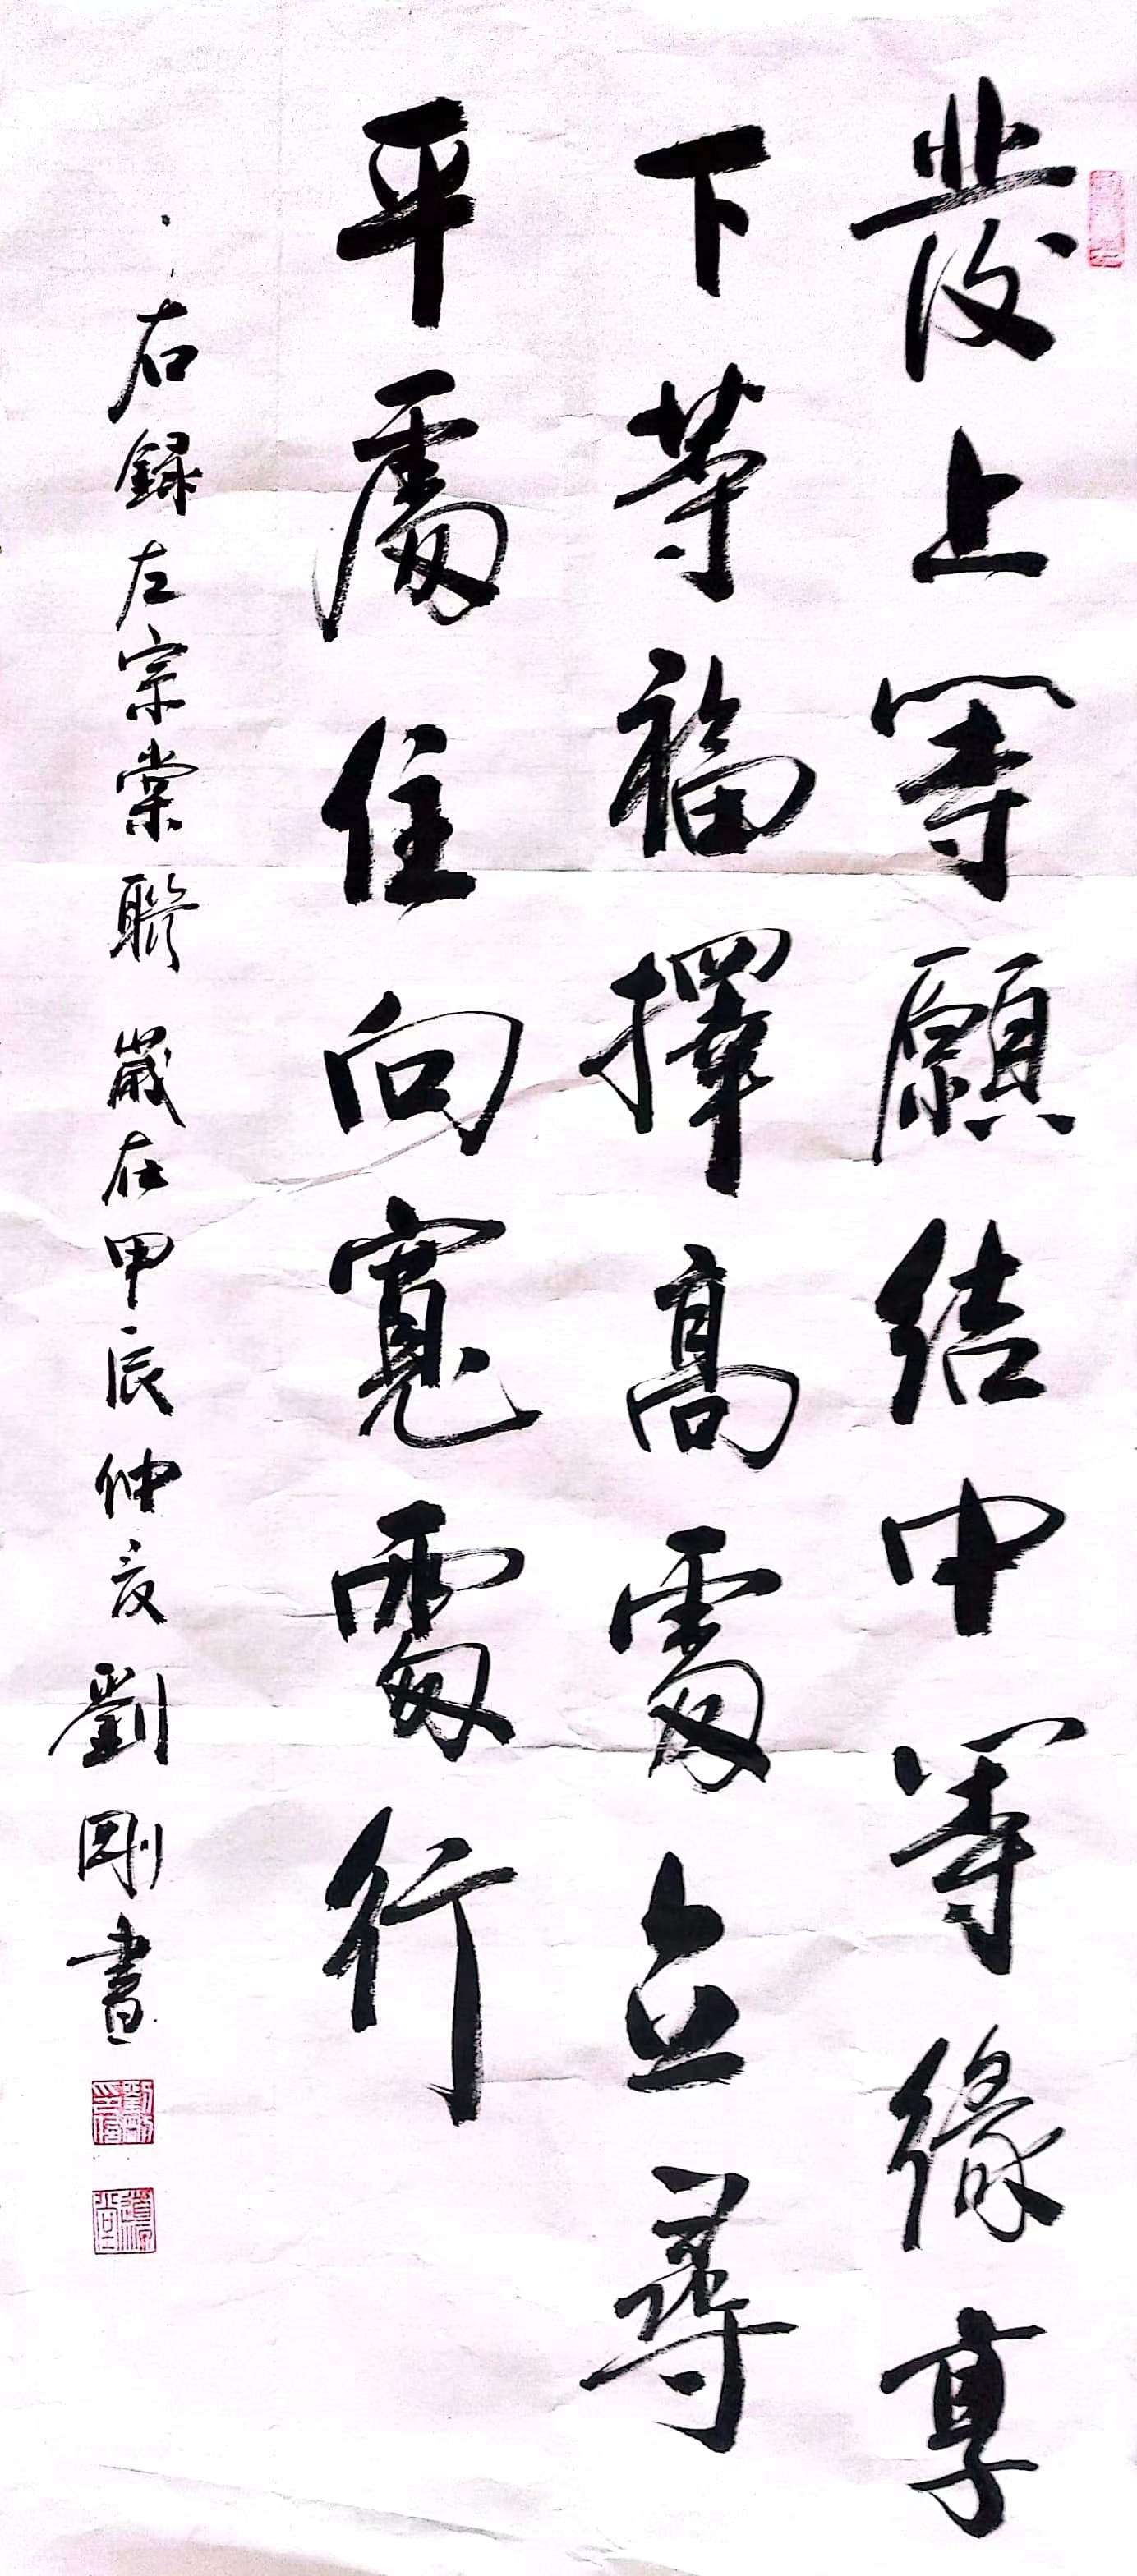 發上等願結中等緣享
下等福擇高處立尋
平處住向寬處行
右録左宗棠聯 歲在甲辰仲夏劉剛書